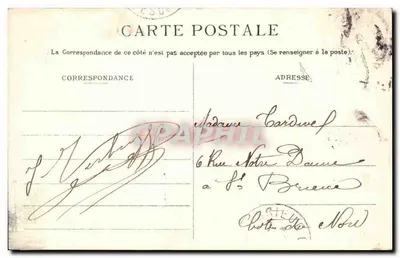 CARTE POSTALE
La Correspondance de ce côté n'est pas acceptée par tous les pays (Se renseigner à la poste)
CORRESPONDANCE
ADRESSE
Madame Cardinel
6 Rue Notre Dame
a St Brieuc
Côtes du Nord